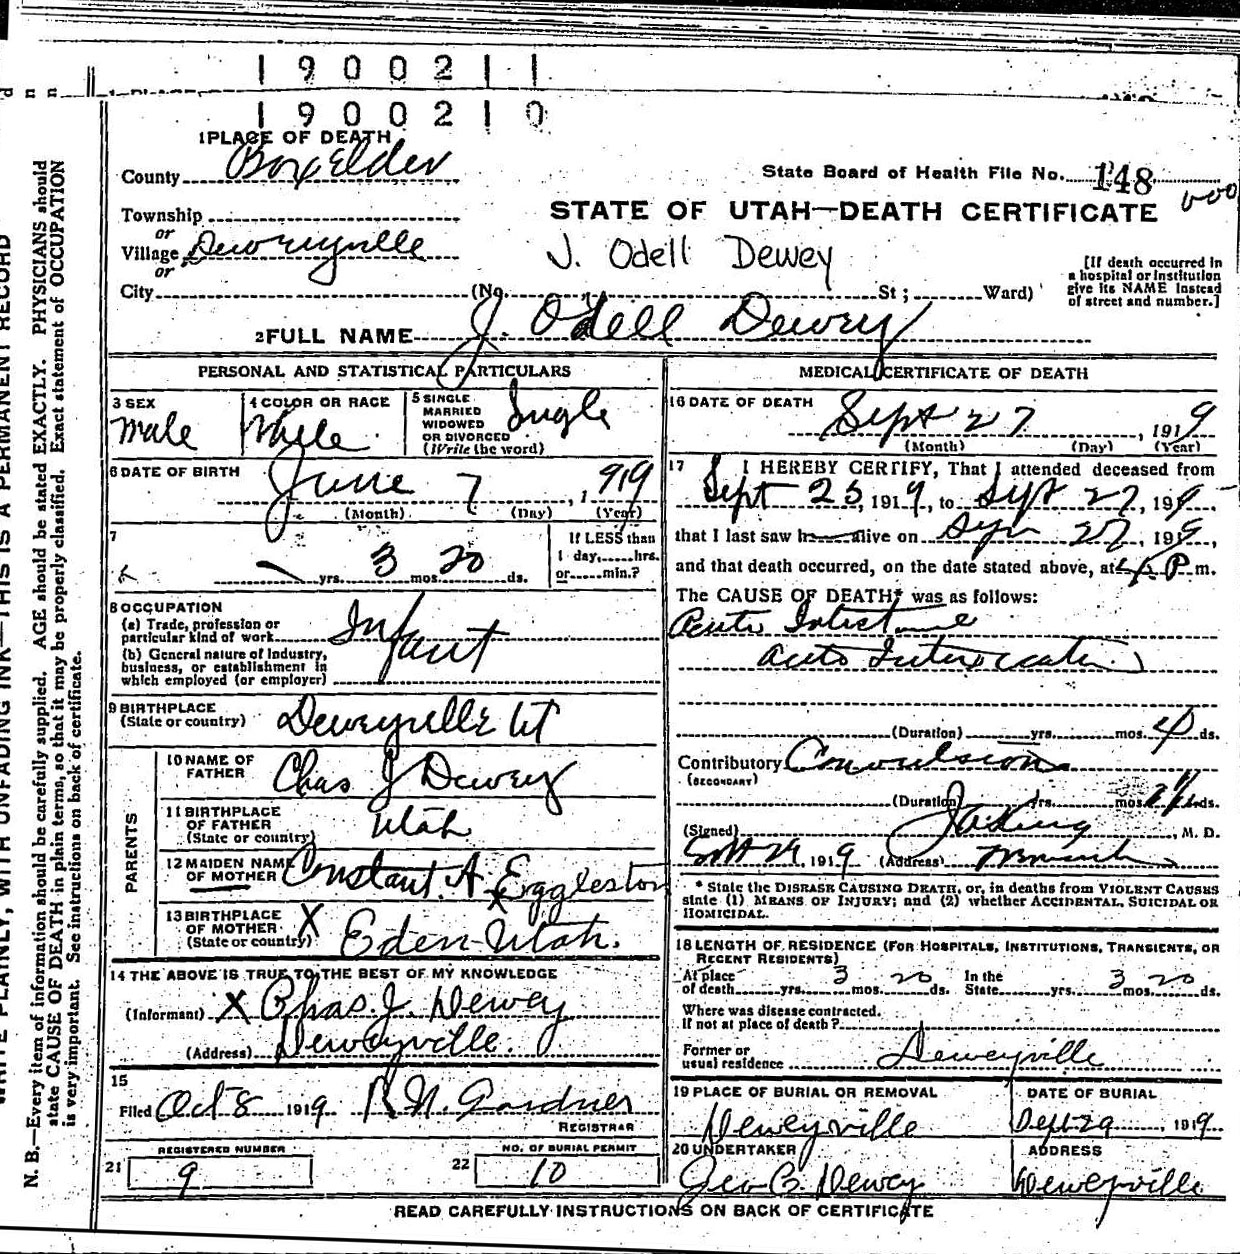 1900211
1900210
1 PLACE OF DEATH
County Box Elder
State Board of Health File No. 148
Township
or
STATE OF UTAH—DEATH CERTIFICATE
Village Deweyville
J. Odell Dewey
or
City (No. St; Ward)
[If death occurred in
a hospital or institution
give its NAME instead
of street and number.]
2 FULL NAME J. Odell Dewey
PERSONAL AND STATISTICAL PARTICULARS
3 SEX
Male
4 COLOR OR RACE
White
5 SINGLE
MARRIED
WIDOWED
OR DIVORCED
(Write the word)
Single
6 DATE OF BIRTH
June 7, 1919
(Month) (Day) (Year)
7
yrs. 3 mos. 20 ds.
If LESS than
1 day,......hrs.
or......min.?
8 OCCUPATION
(a) Trade, profession or
particular kind of work
Infant
(b) General nature of Industry,
business, or establishment in
which employed (or employer)
9 BIRTHPLACE
(State or country) Deweyville Ut
PARENTS
10 NAME OF
FATHER Chas J Dewey
11 BIRTHPLACE
OF FATHER
(State or country) Utah
12 MAIDEN NAME
OF MOTHER Constant. A. Eggleston
13 BIRTHPLACE
OF MOTHER
(State or country) X Eden Utah.
14 THE ABOVE IS TRUE TO THE BEST OF MY KNOWLEDGE
(Informant) X Chas. J. Dewey
(Address) Deweyville.
15
Filed Oct 8 1919 R. N. Gardner
REGISTRAR
21 REGISTERED NUMBER
9
22 NO. OF BURIAL PERMIT
10
MEDICAL CERTIFICATE OF DEATH
16 DATE OF DEATH
Sept 27, 1919
(Month) (Day) (Year)
17 I HEREBY CERTIFY, That I attended deceased from
Sept 25, 1919, to Sept 27, 191
that I last saw h alive on 27, 1919,
and that death occurred, on the date stated above, at P m.
The CAUSE OF DEATH* was as follows:
Acute
Auto Intoxication
(Duration) yrs. mos. ds.
Contributory Convulsions
(SECONDARY)
(Duration) yrs. mos. ds.
(Signed) , M. D.
Sept 29, 1919 (Address)
* State the DISEASE CAUSING DEATH, or, in deaths from VIOLENT CAUSES
state (1) MEANS OF INJURY; and (2) whether ACCIDENTAL, SUICIDAL OR
HOMICIDAL.
18 LENGTH OF RESIDENCE (FOR HOSPITALS, INSTITUTIONS, TRANSIENTS, OR
RECENT RESIDENTS)
At place
of death yrs. 3 mos. 20 ds.
In the
State yrs. 3 mos. 20 ds.
Where was disease contracted.
If not at place of death?
Former or
usual residence Deweyville
19 PLACE OF BURIAL OR REMOVAL
Deweyville
DATE OF BURIAL
Sept 29, 1919
20 UNDERTAKER
Geo B. Dewey
ADDRESS
Deweyville
READ CAREFULLY INSTRUCTIONS ON BACK OF CERTIFICATE
WRITE PLAINLY, WITH UNFADING INK—THIS IS A PERMANENT RECORD
N. B.—Every item of information should be carefully supplied. AGE should be stated EXACTLY. PHYSICIANS should
state CAUSE OF DEATH in plain terms, so that it may be properly classified. Exact statement of OCCUPATION
is very important. See instructions on back of certificate.